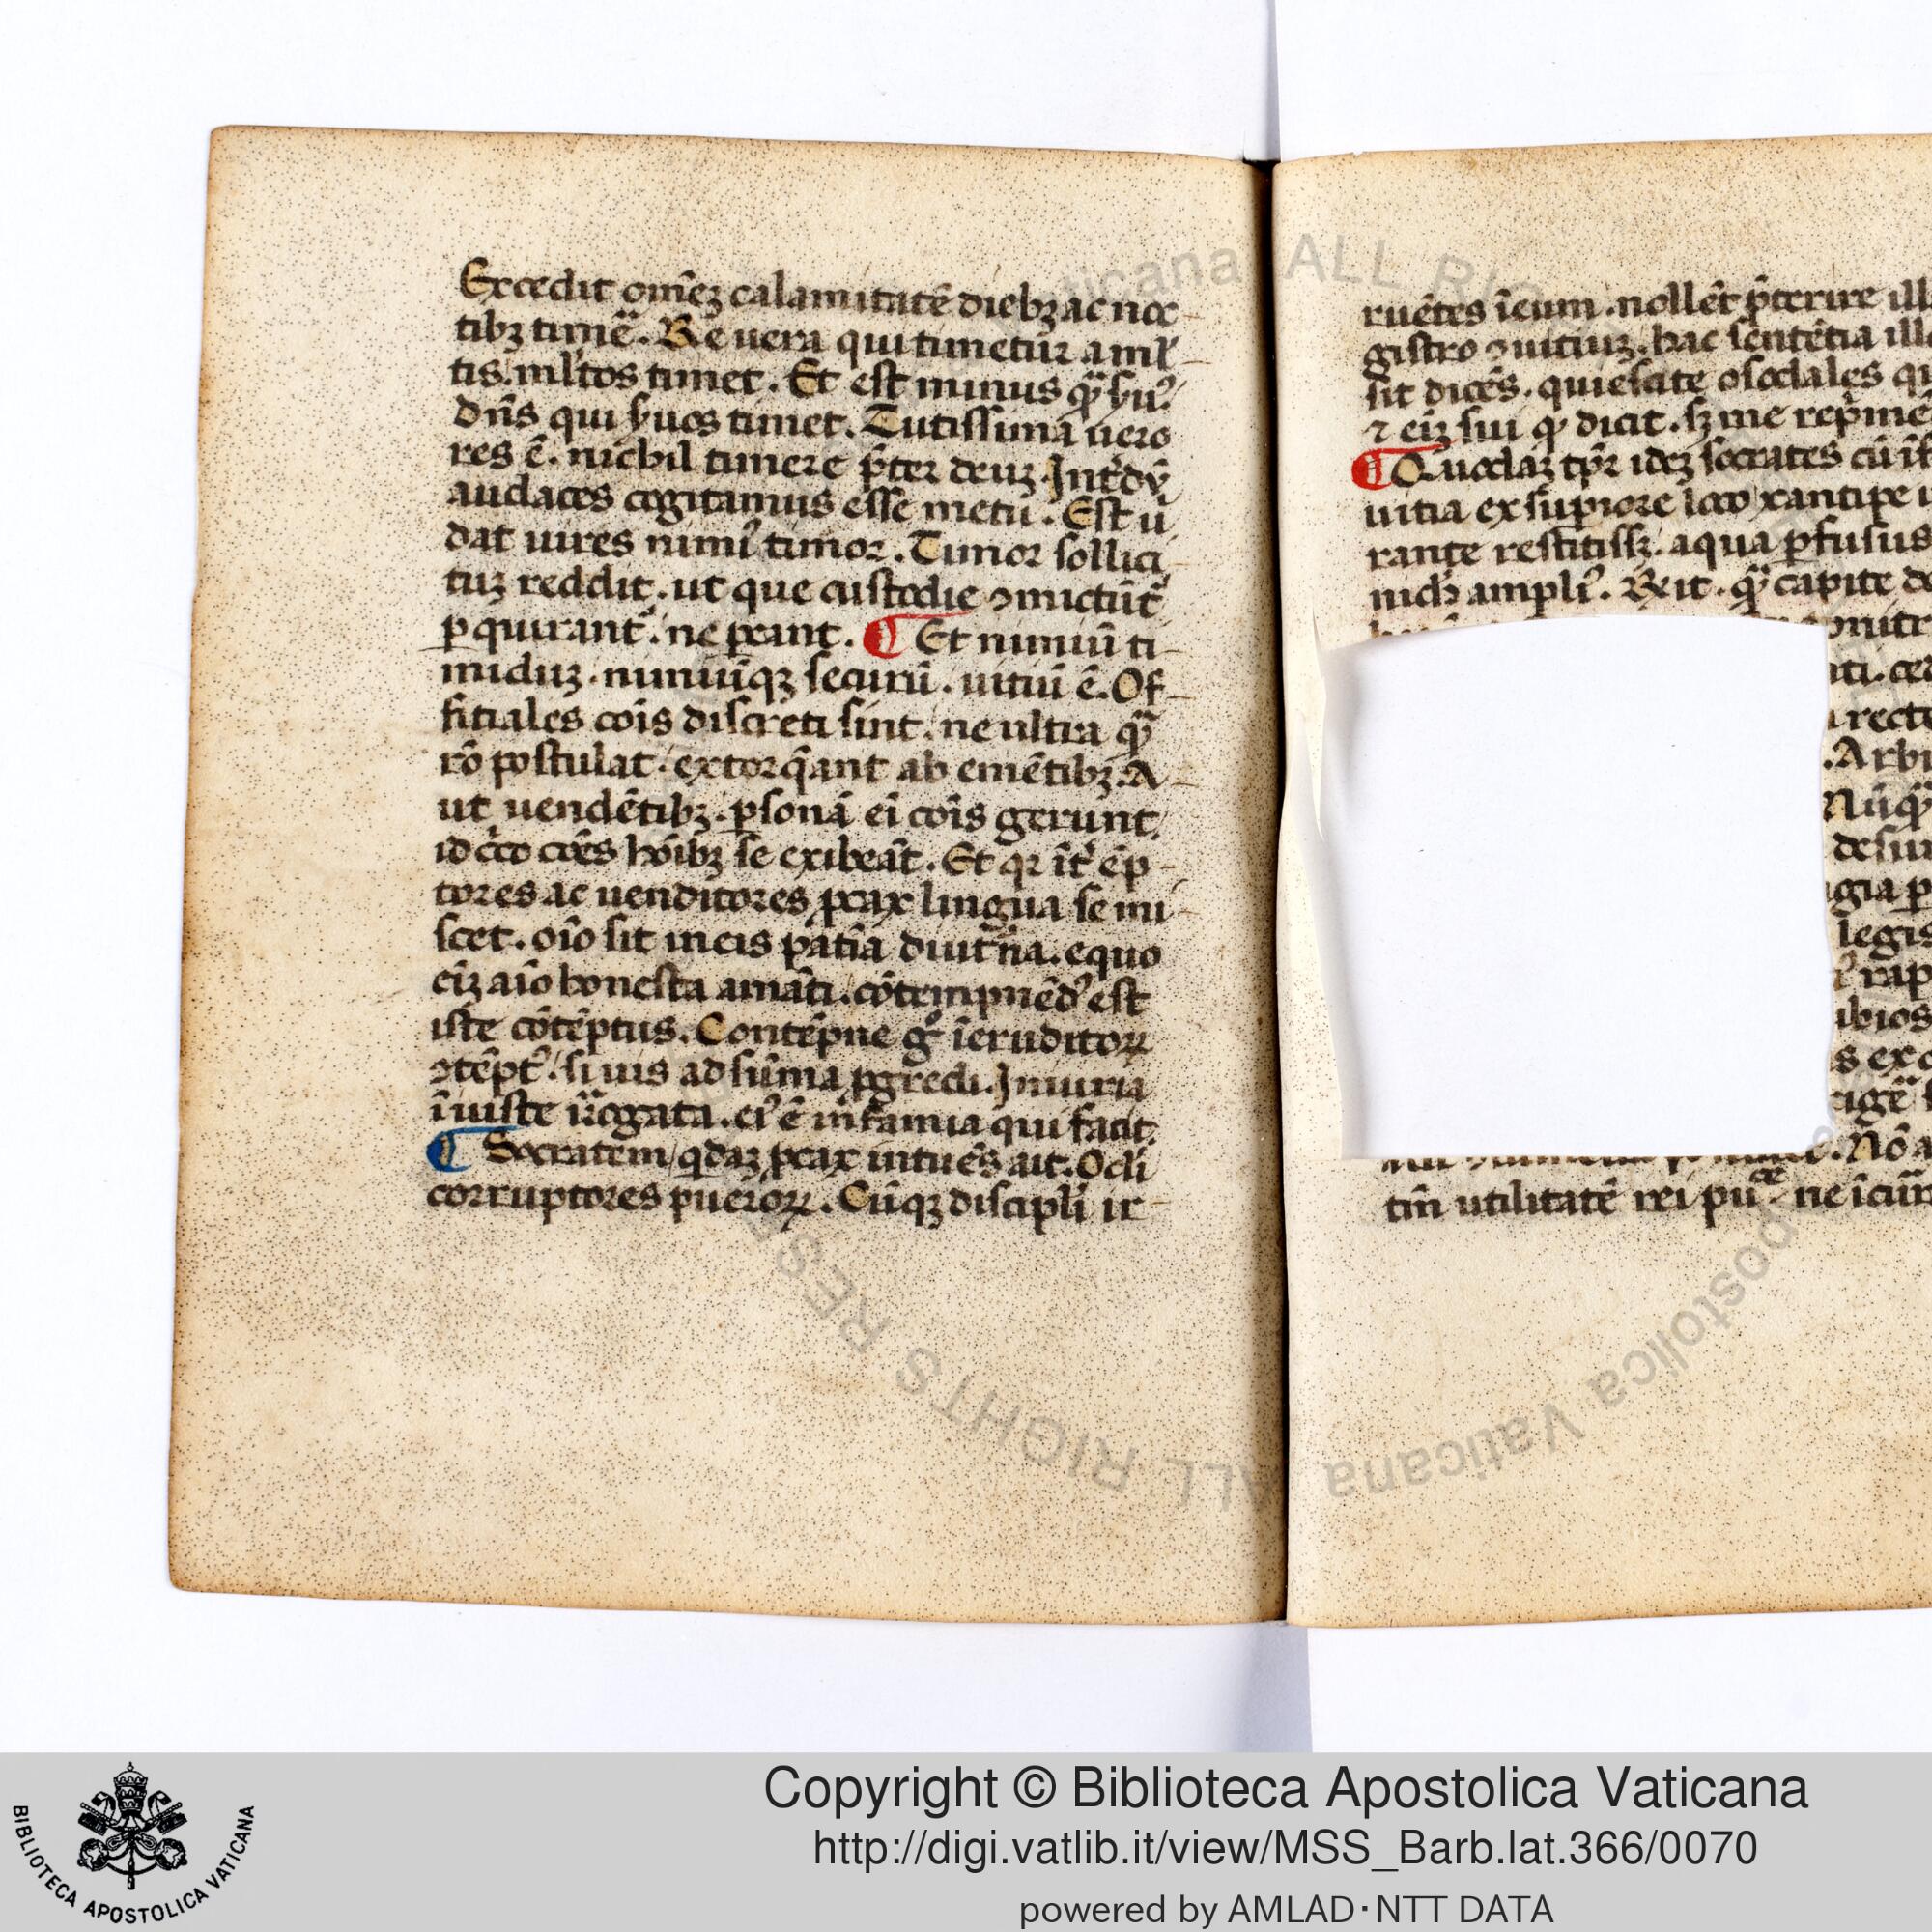 Excedit om̄eʒ calamitatē diebʒ ac noc
tibʒ timē. Re uera qui timetur a ml
tis. ml̄tos timet. Et est minus qͣ ẜuꝰ.
dn̄s qui ẜuos timet. Tutissima uero
res ē. nichil timere p̄ter deuʒ. Int̄dū
audaces cogitamus esse metū. Est u
dat uires nimiꝰ timor. Timor sollici
tuʒ reddit. ut que custodie ꝯmictūt̄
ꝑquirant̄. ne ꝑeant. ¶ Et nimiū ti
miduʒ. nimiūqʒ securū. uitiū ē. Of
fitiales cōis discreti sint. ne ultra qͣ
rō postulat. extorq̄ant ab emētibʒ. A
ut uendētibʒ. ꝑsonā ei cōis gerunt.
idcͦco cōes hōibʒ se exibeāt. Et qꝛ īt̄ ēp
tores ac uenditores ꝓcax lingua se mi
scet. oīo sit in eis patīa diut̄na. equo
eiʒ aīo honesta amāti. cōtempnēdꝰ est
iste cōtēptus. Contēpne gͦ ieruditoꝝ
ꝯtēptꝰ. si uis ad sūma ꝓgredi. Iniuria
īiuste irrogata. eiꝰ ē infamia qui facit.
¶ Socratem qͥdaʒ ꝓcax intuēs ait. Odi
corruptores pueroꝝ. Cūqʒ discipli ir
ruētes ī eum. nollēt p̄terire ill
gistro ꝯuitiuʒ. hac sentētia illa
sit dicēs. quiescite o sodales qu
⁊ eiʒ sui qͥ dicit. sʒ me rep̄me
¶ Quodaʒ tp̄r ideʒ socrates cū īt
uitia ex suꝑiore loco xantipe i
rante restitissʒ. aqua ꝑfusus
nich ampliꝰ. Rx̄it. qͣ capite de
ti. ce
recte
. Arbi
Nūqͣ
desin
gia ꝑ
legis
rap
bios
s exc
cigē
. Nō a
tm̄ utilitatē rei pu ce ne īcūr
Copyright © Biblioteca Apostolica Vaticana
http://digi.vatlib.it/view/MSS_Barb.lat.366/0070
powered by AMLAD·NTT DATA
BIBLIOTECA APOSTOLICA VATICANA